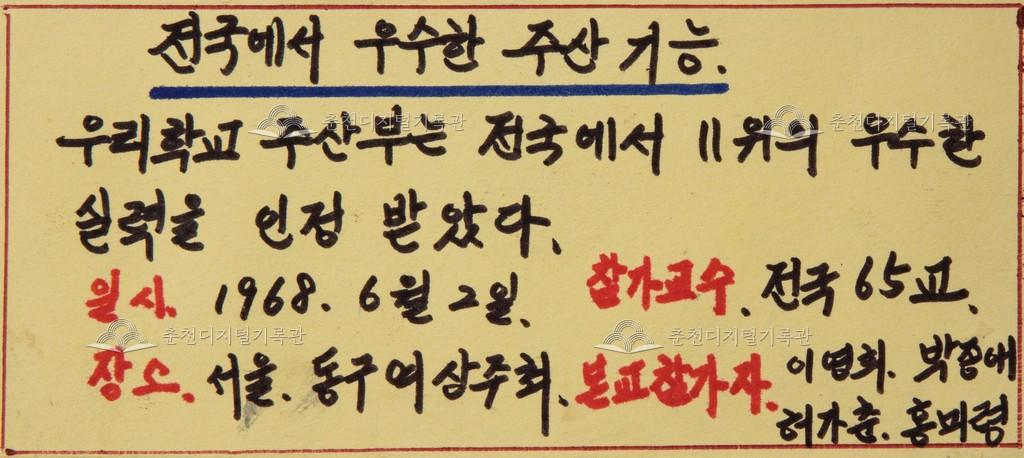 전국에서 우수한 주산 기능.
우리학교 주산부는 전국에서 11위의 우수한
실력을 인정 받았다.
일시. 1968. 6월 2일. 참가교수. 전국 65교.
장소. 서울. 동구여상주최. 본교참가자. 이영희. 박종애
허가춘. 홍미령
춘천디지털기록관
춘천디지털기록관
춘천디지털기록관
춘천디지털기록관